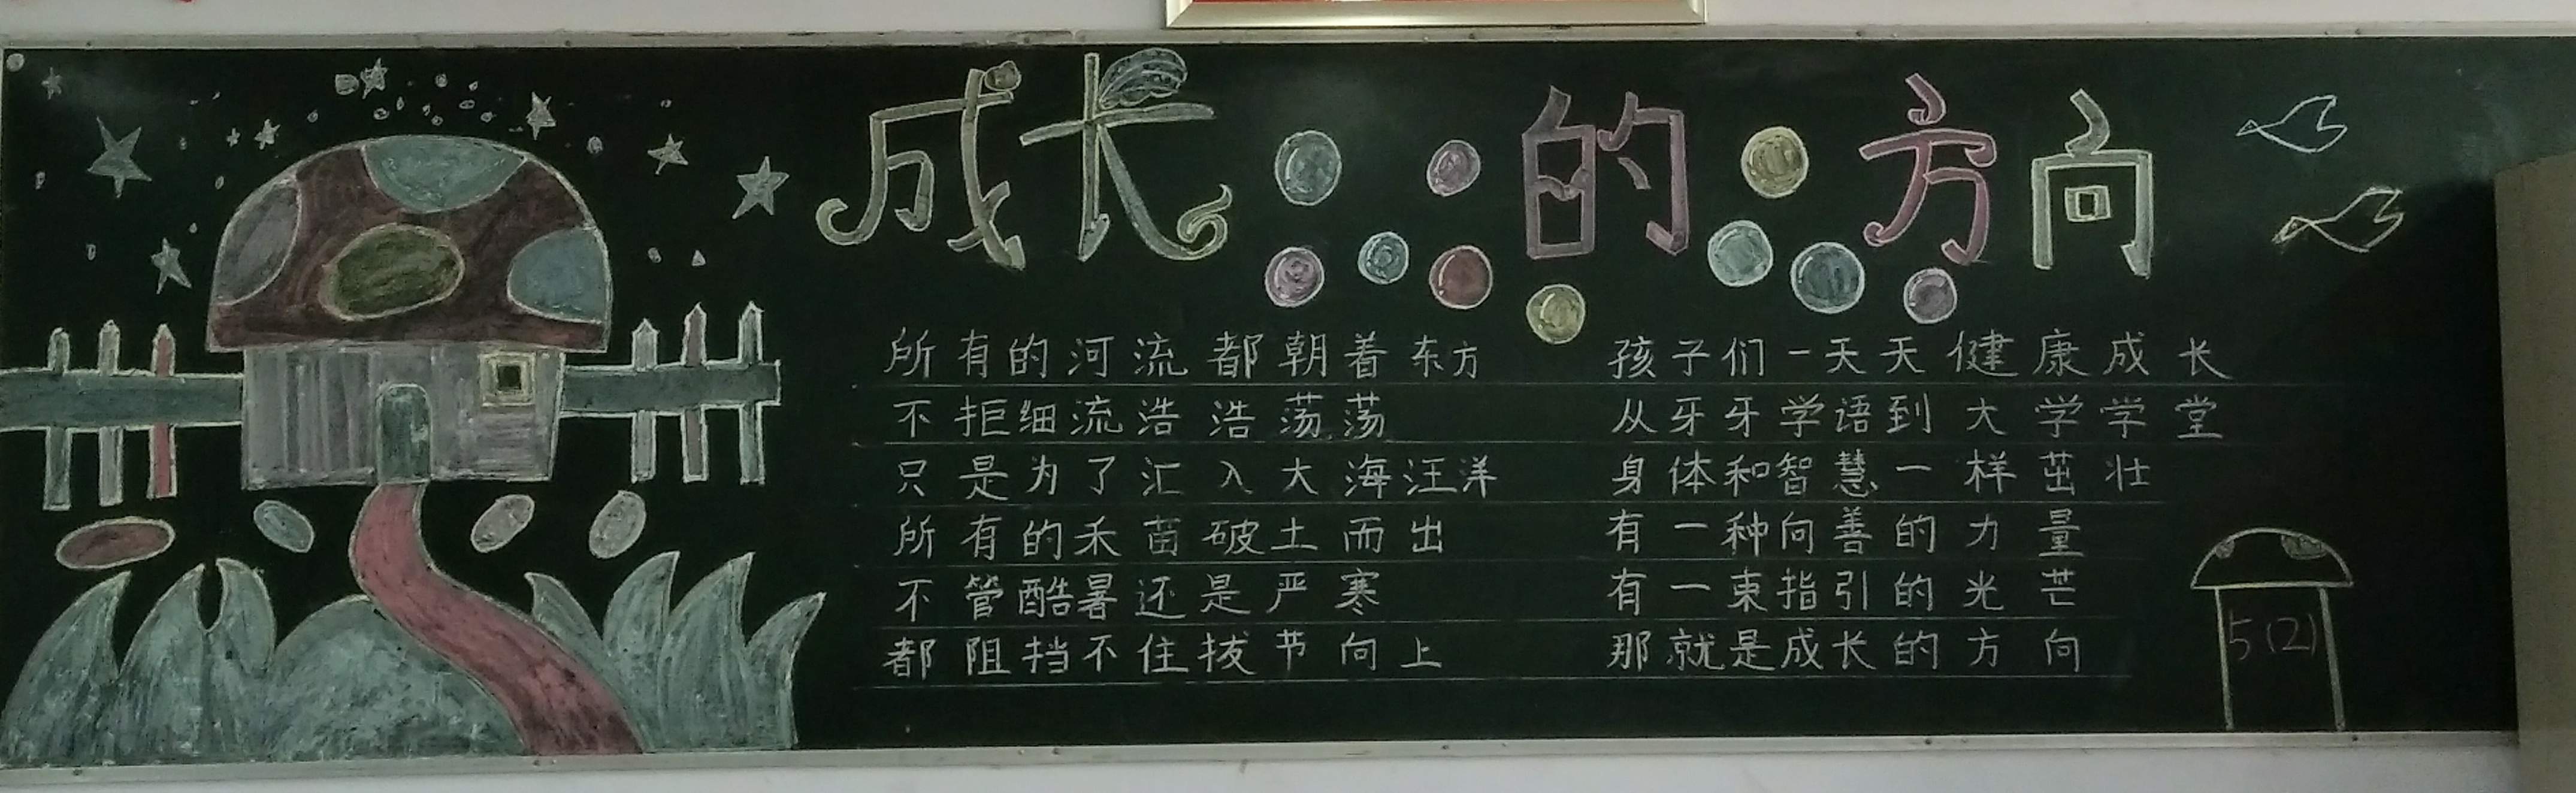 成长的方向
所有的河流都朝着东方
不拒细流浩浩荡荡
只是为了汇入大海汪洋
所有的禾苗破土而出
不管酷暑还是严寒
都阻挡不住拔节向上
孩子们一天天健康成长
从牙牙学语到大学学堂
身体和智慧一样茁壮
有一种向善的力量
有一束指引的光芒
那就是成长的方向
5(2)